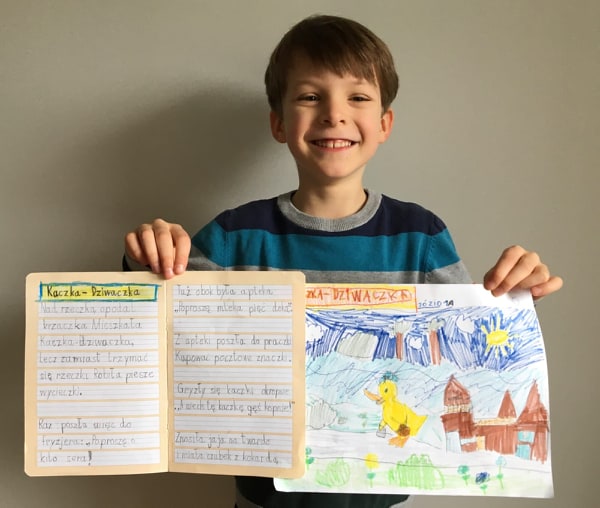 Kaczka-Dziwaczka
Nad rzeczką opodal
krzaczka Mieszkała
kaczka-dziwaczka,
lecz zamiast trzymać
się rzeczki Robiła piesze
wycieczki.
Raz poszła więc do
fryzjera: „Poproszę o
kilo sera!
Tuż obok była apteka
„Poproszę mleka pięć deka".
Z apteki poszła do praczki
Kupować pocztowe znaczki.
Gryzły się kaczki okropnie
„A niech tę kaczkę gęś kopnie!"
Znosiła jaja na twardo
i miała czubek z kokardą
CZKA-DZIWACZKA
JÓZIO 1A